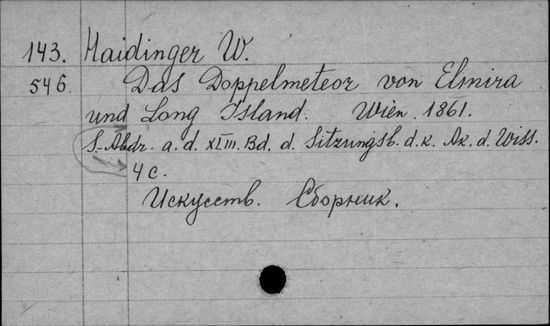 143. Haidinger W.
546. Das Doppelmeteor von Elmira
und Long Island. Wien. 1861.
S.-Abdr. a. d. XLIII. Bd. d. Sitzungsb. d. k. Ak. d. Wiss.
4 с.
Искусств. Сборник.